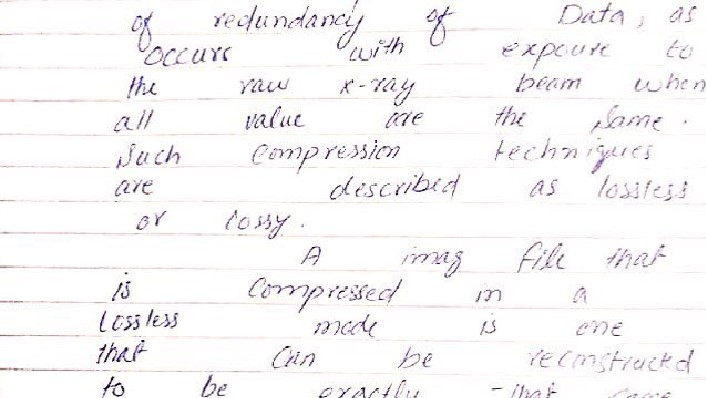 of redundancy of Data, as
occurs with expoure to
the raw x-ray beam when
all value are the same.
Such Compression techniques
are described as lossless
or lossy.
A imag file that
is Compressed in a
Lossless mode is one
that Can be reconstructed
to be exactly that same